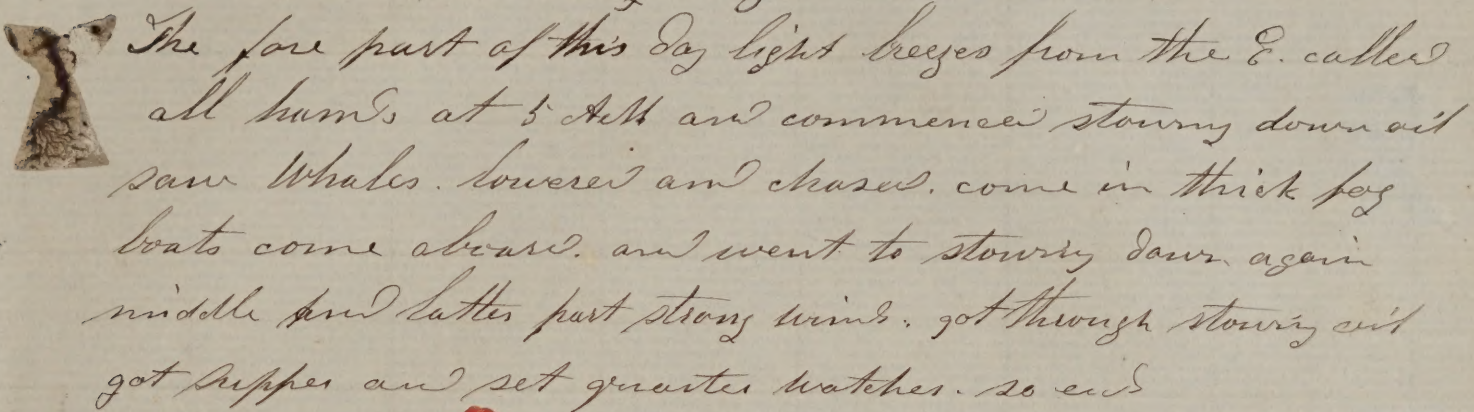 The fore part of this day light breezes from the E. called
all hands at 5 AM and commenced stowing down oil
saw Whales. lowered and chased. come in thick fog
boats come aboard. and went to stowing down again
middle and latter part strong winds. got through stowing oil
got supper and set quarter watches. so ends